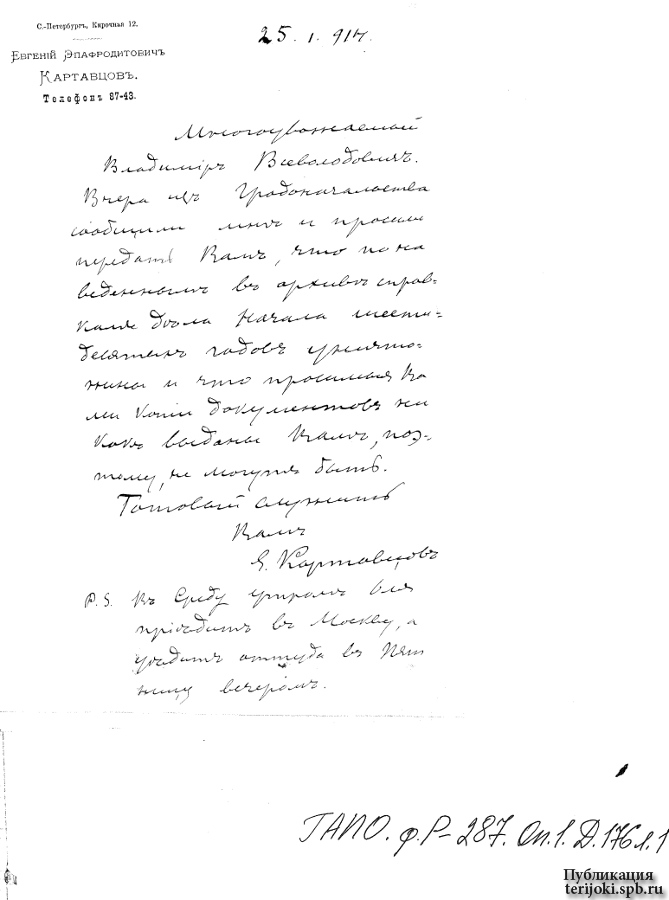 С.-Петербургъ, Кирочная 12.
Евгеній Эпафродитовичъ
Картавцовъ.
Телефонъ 87-43.
25. 1. 914.
Многоуважаемый
Владиміръ Всеволодовичъ.
Вчера изъ Градоначальства
сообщили мнѣ и просили
передать Вамъ, что по на
веденнымъ въ архивѣ справ-
камъ дѣла начала шести-
десятыхъ годовъ уничто-
жены и что просимыя Ва
ми копіи документовъ ни
какъ выданы Вамъ, поэ-
тому, не могутъ быть.
Готовый служить
Вамъ
Е. Картавцовъ
P. S. Въ Среду утромъ
пріѣдитъ въ Москву, а
уѣдитъ оттуда въ Пят
ницу вечеромъ.
ГАПО. ф. Р-287. Оп. 1. Д. 176 л. 1
Публикация
terijoki.spb.ru